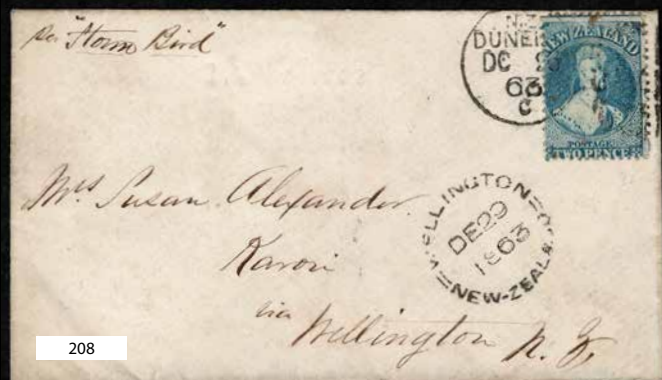 Per "Storm Bird"
N.Z.
DUNE
DC 2
63
C
NEW ZEALAND
POSTAGE
TWO PENCE
Mrs Susan Alexander
Karori
via
Wellington N. Z.
WELLINGTON
DE 29
1863
NEW-ZEALA
208